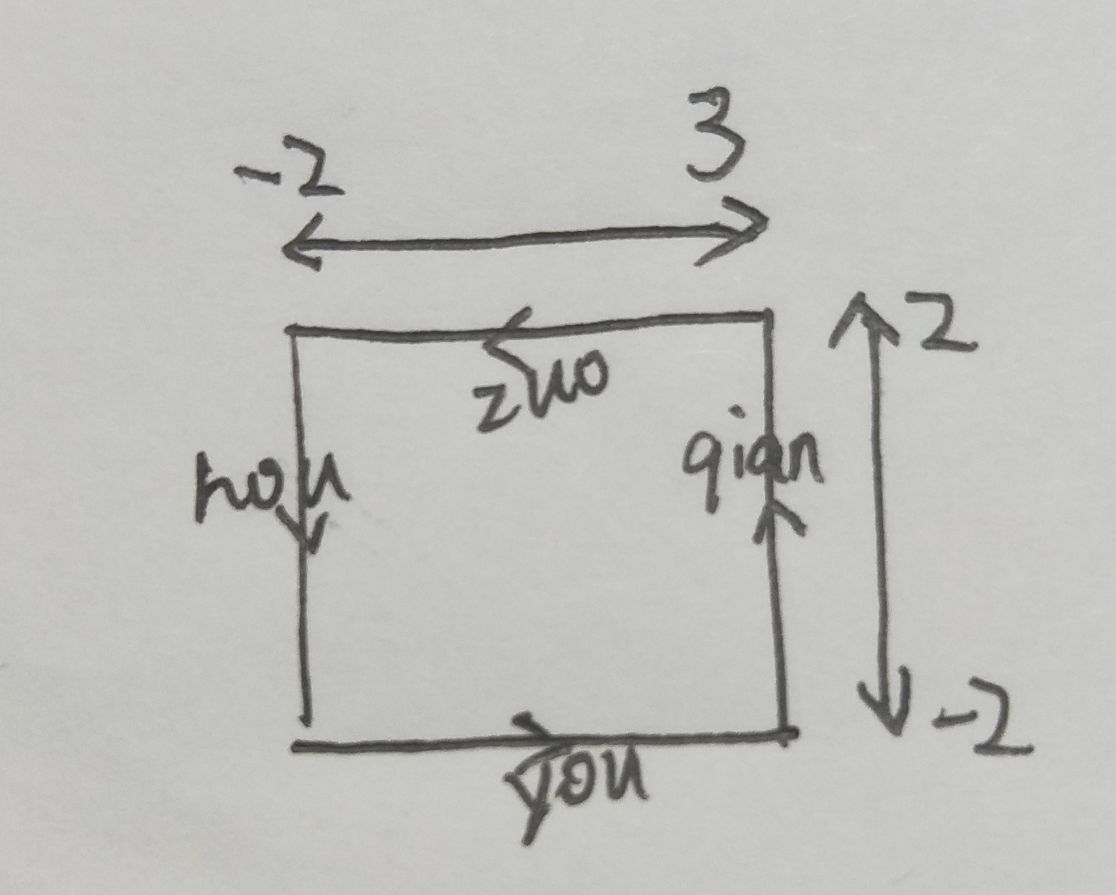 -2 3
2
zuo
hou qian
-2
you